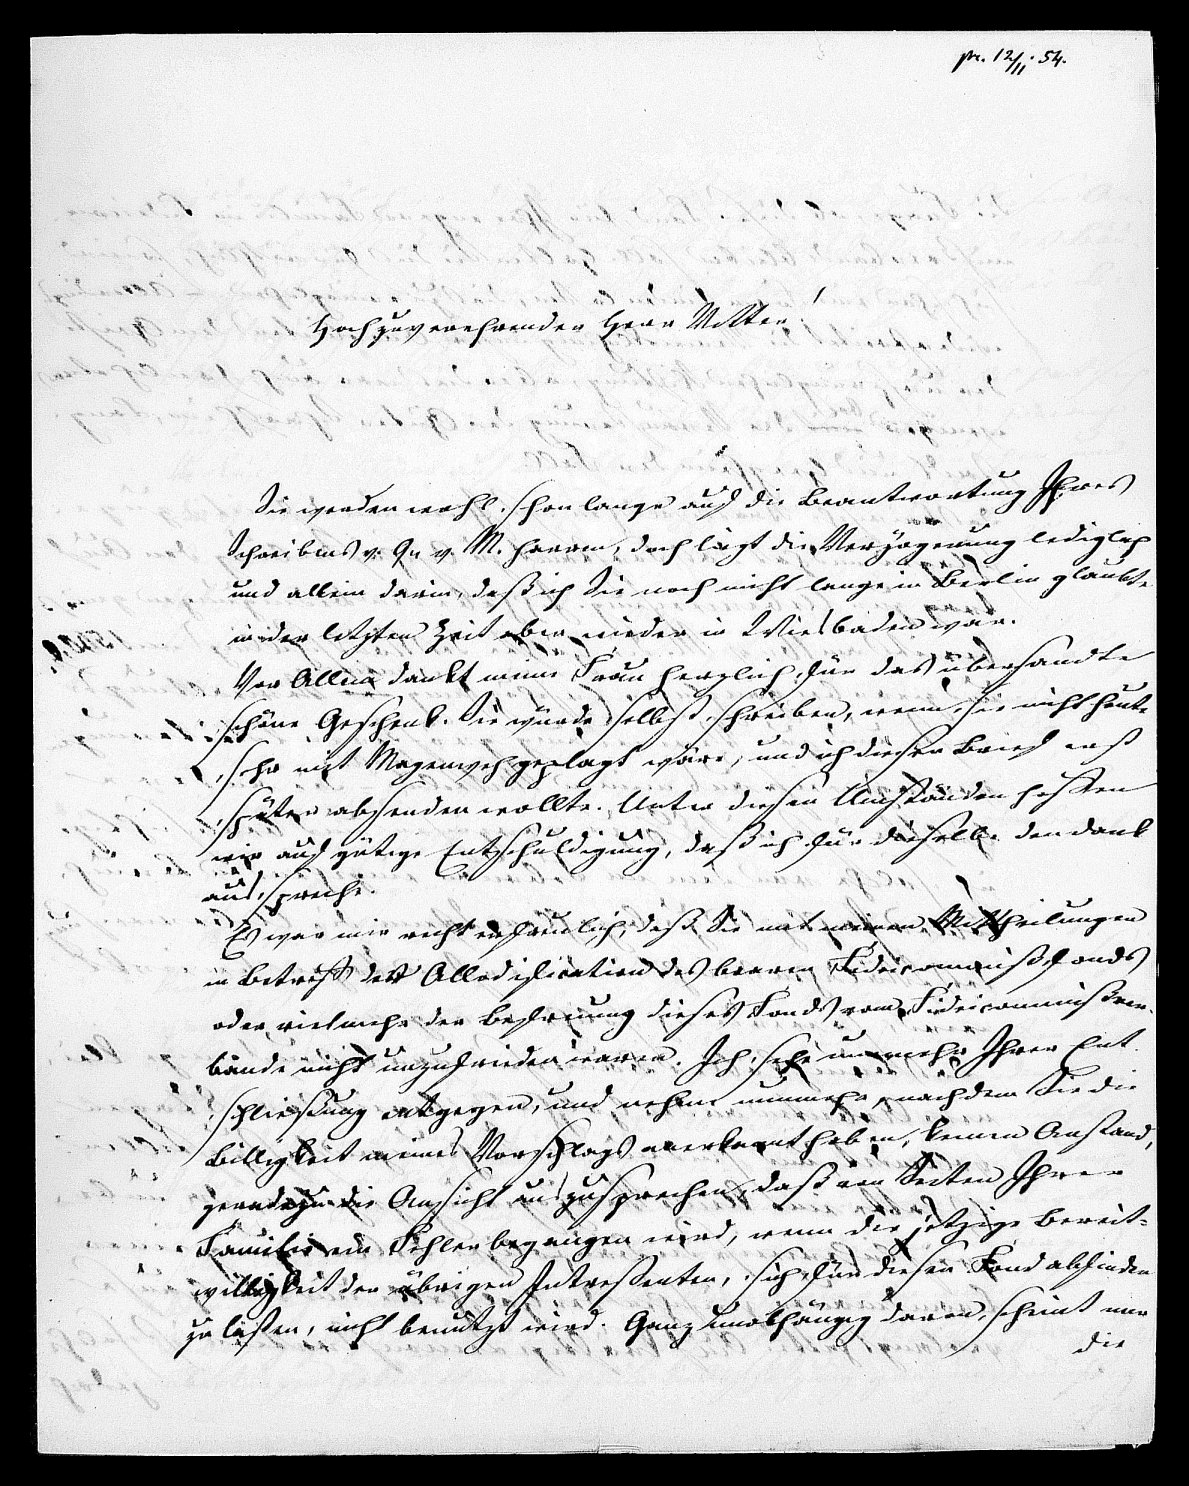 pr. 12/11. 54.
Hochzuverehrender Herr Vetter!
Sie werden wohl schon lange auf die Beantwortung Ihres
Schreibens v. v. M. harren, doch liegt die Verzögerung lediglich
und allein darin, daß ich Sie noch nicht lange in Berlin glaubte
in der letzten Zeit aber wieder in Wiesbaden war.
Vor Allem dankt meine Frau herzlich für das übersandte
schöne Geschenk. Sie würde selbst schreiben, wenn sie nicht heute
sehr mit Magenweh geplagt wäre, und ich diesen Brief erst
später absenden wollte. Unter diesen Umständen hoffen
wir auf gütige Entschuldigung, daß ich für dieselbe den Dank
ausspreche.
Es war mir recht erfreulich, daß Sie mit meinen Mittheilungen
in Betreff der Allodification des baaren Fideicommißfonds
oder vielmehr der Befreiung dieses Fonds vom Fideicommißver-
bande nicht unzufrieden waren. Ich sehe nunmehr Ihrer Ent-
schließung entgegen, und nehme nunmehr, nachdem Sie die
Billigkeit meines Vorschlags anerkannt haben, keinen Anstand,
geradezu die Ansicht auszusprechen, daß von Seiten Ihrer
Familie ein Fehler begangen wird, wenn die jetzige Bereit-
willigkeit der übrigen Interessenten, sich für diesen Fond abfinden
zu lassen, nicht benutzt wird. Ganz unabhängig davon scheint mir
die